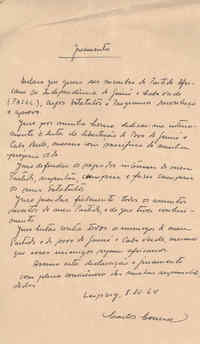 Juramento
Declaro que quero ser membro do Partido Afri-
cano da Independência da Guiné e Cabo Verde
(PAIGC), cujos Estatutos e Programa reconheço
e aprovo.
Juro por minha honra dedicar-me inteira-
mente à luta de libertação do Povo da Guiné e
Cabo Verde, mesmo com sacrifício da minha
própria vida.
Juro defender os
Partido, respeitar, cumprir e fazer cumprir
os seus Estatutos.
Juro guardar fielmente todos os
segredos do meu Partido, de que tiver conheci-
mento.
Juro lutar contra todos os inimigos do meu
Partido e do povo da Guiné e Cabo Verde, mesmo
que esses inimigos sejam africanos.
Assino esta declaração e juramento
com plena consciência das minhas responsabili-
dades.
Leipzig,